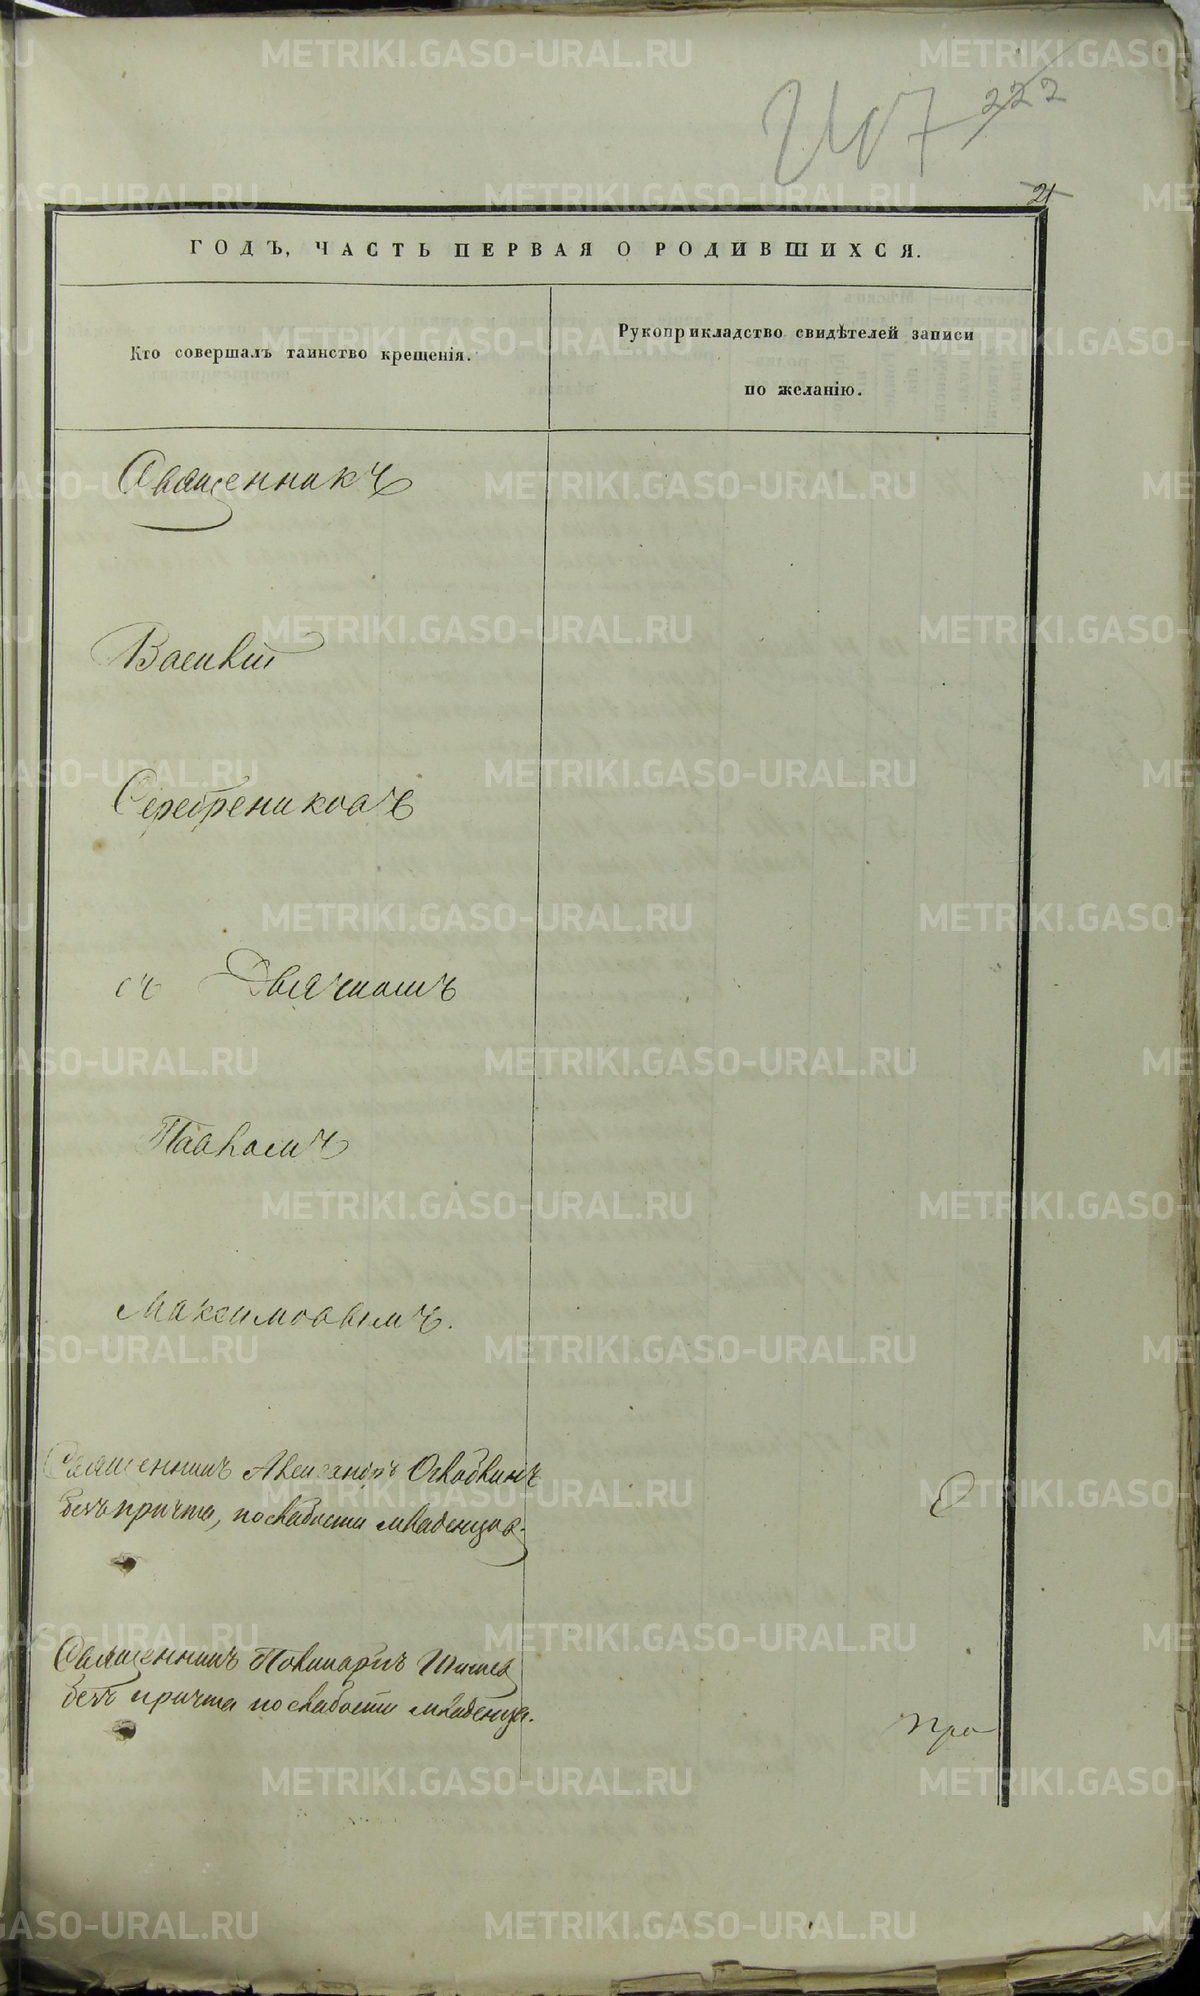 222
21
ГОДЪ, ЧАСТЬ ПЕРВАЯ О РОДИВШИХСЯ.
Кто совершалъ таинство крещенія.
Рукоприкладство свидѣтелей записи
по желанію.
Священникъ
Василій
Серебрениковъ
съ Дьячкомъ
Павломъ
Максимовымъ.
Священникъ Александръ
безъ причта, по слабости младенцовъ.
Священникъ Поликарпъ
безъ причта по слабости младенца.
METRIKI.GASO-URAL.RU